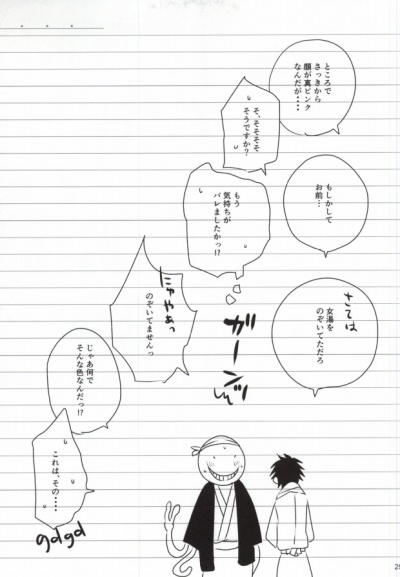 ところで
さっきから
顔が真ピンク
なんだが・・・・
そ、そそそそ
そうですか？
もしかして
お前…
もう
気持ちが
バレましたかっ!?
さては
女湯を
のぞいてただろ
ガーンッ
にゅやあっ
のぞいてませんっ
じゃあ何で
そんな色なんだっ!?
これは、その・・・・
gdgd
29